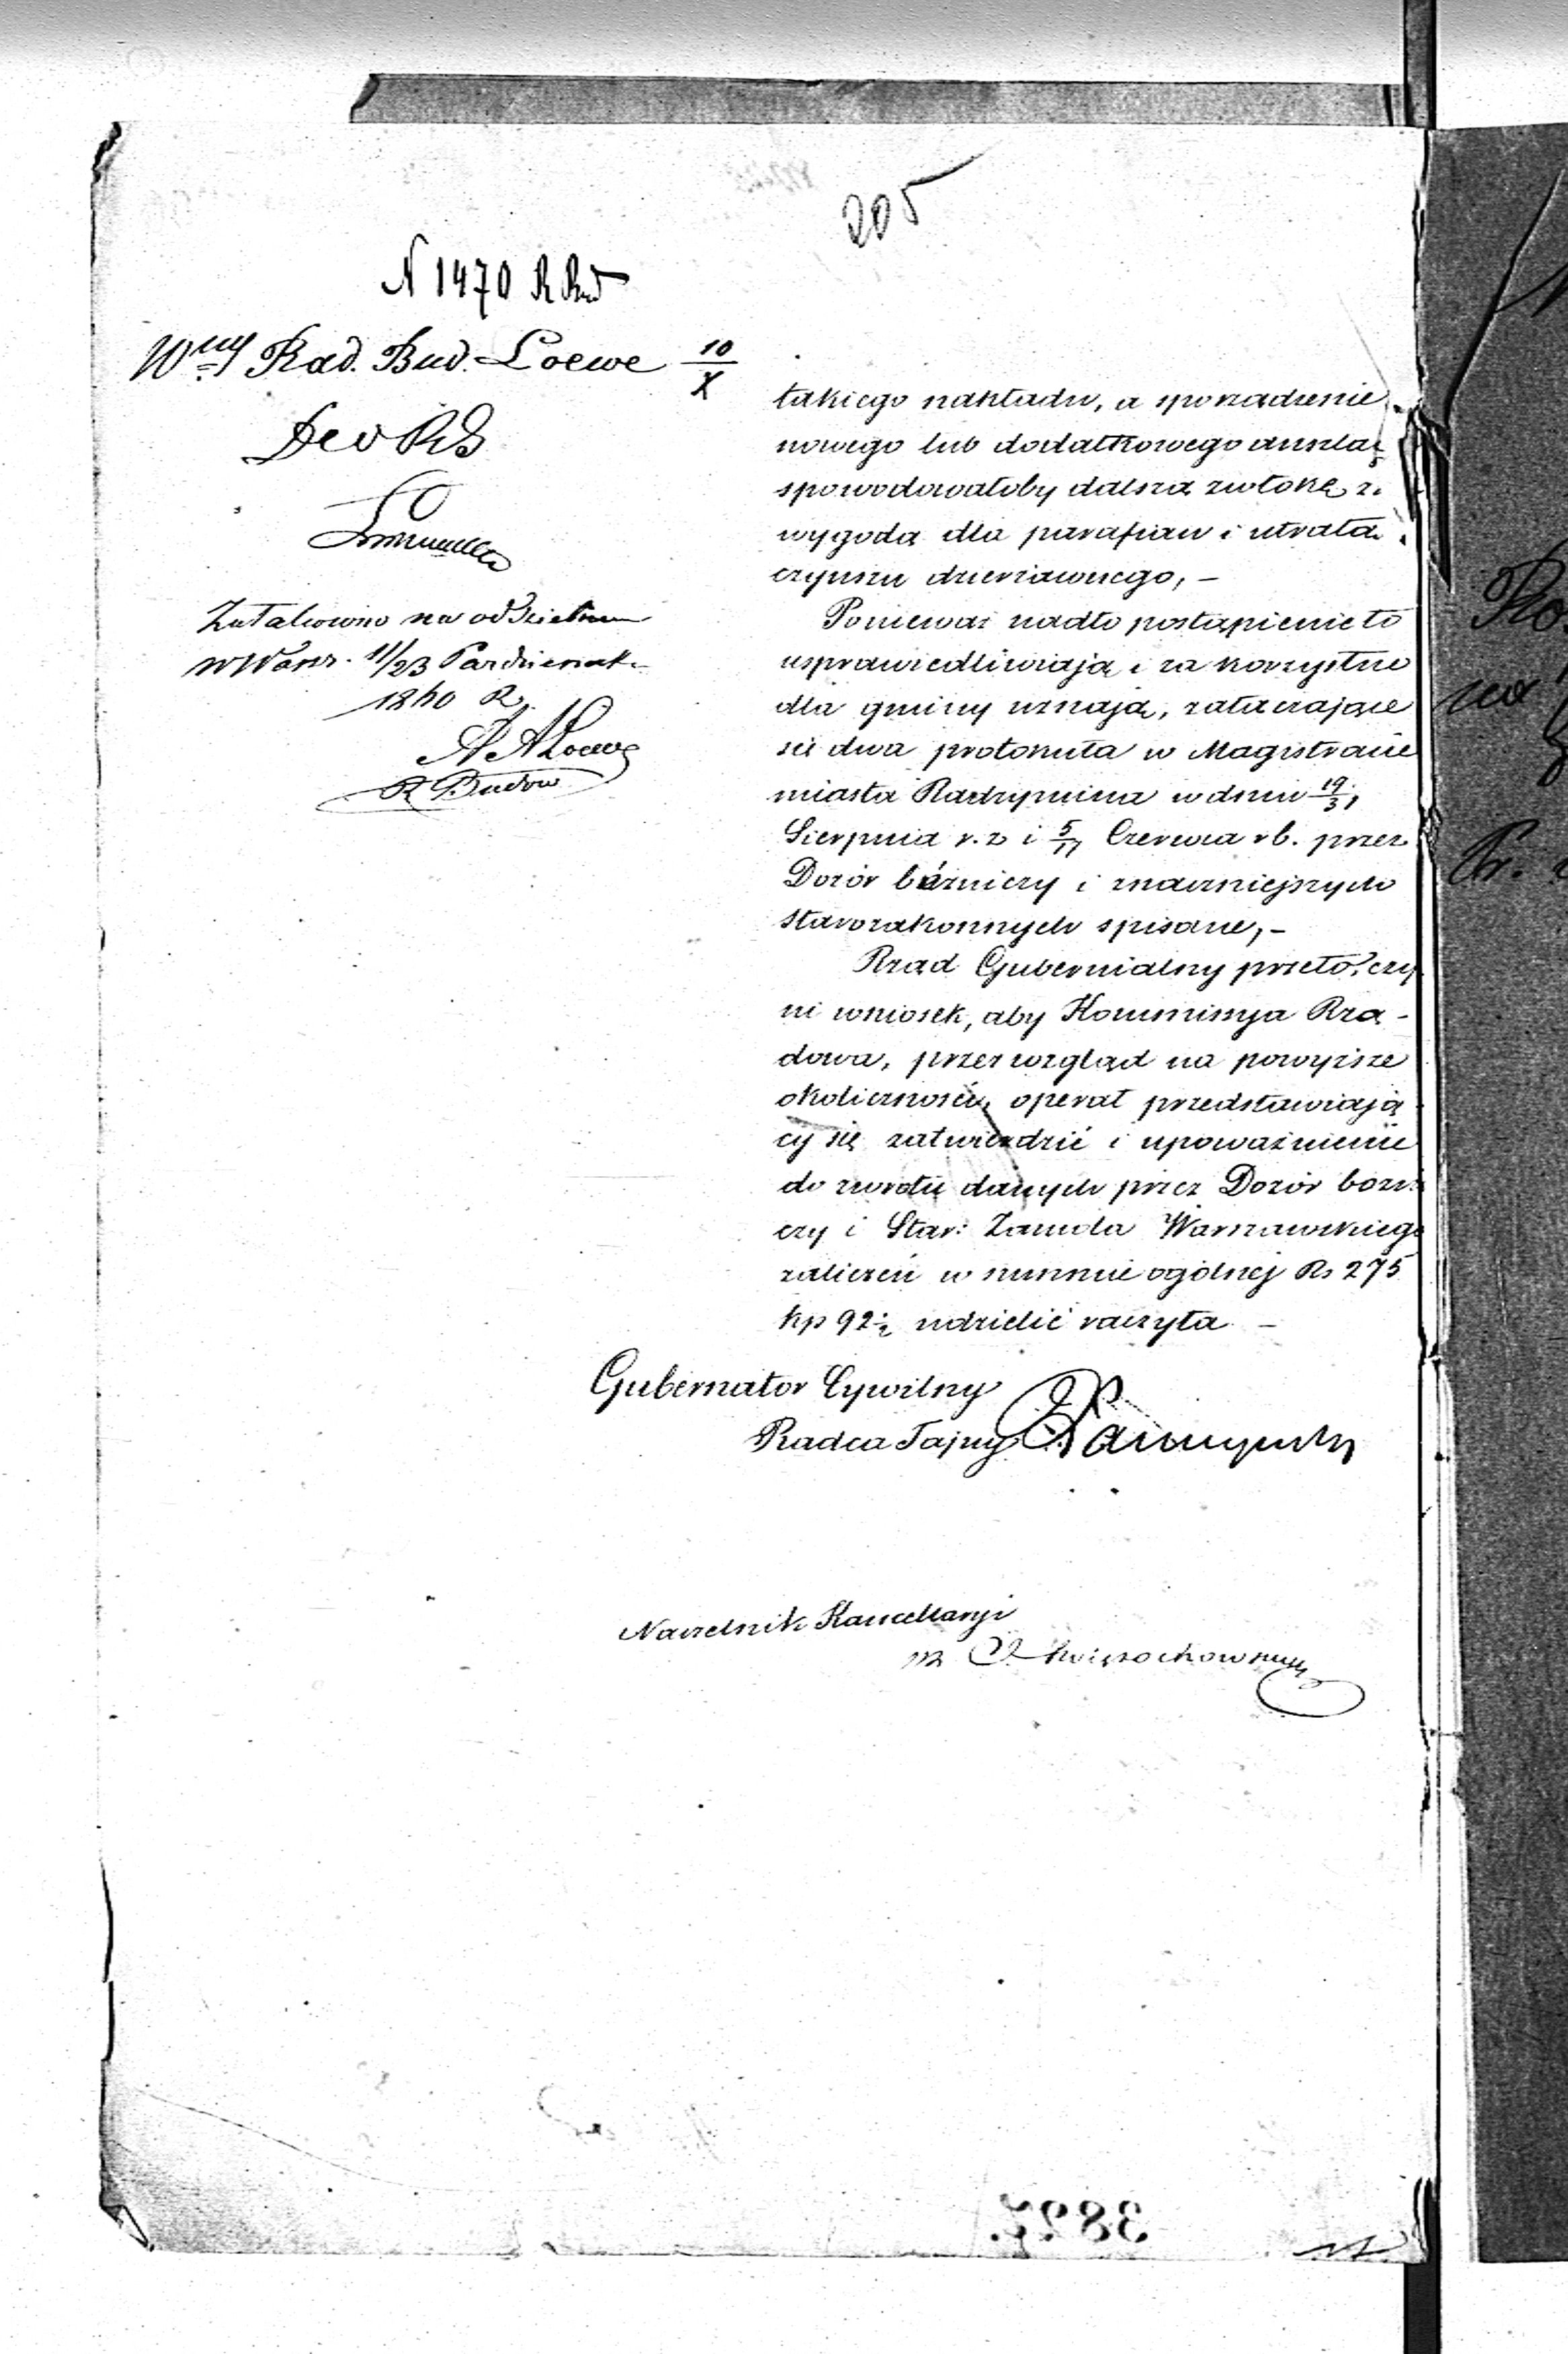 205
N 1470 R Bud
Wny Rad. Bud. Loewe 10/X
Załatwiono na oddzielnem
w Warsz. 11/23 Październik
1840 R.
A Loewe
R Budow
takiego nakładu, a sporządzenie
nowego lub dodatkowego anszla
spowodowałoby dalszą zwłokę z
wygodą dla parafian i utratą
czynszu dzierżawnego, –
Ponieważ nadto postąpienie to
usprawiedliwiają i za korzystne
dla gminy uznają, załączające
się dwa protokuła w Magistracie
miasta Radzymina w dniu 19/31
Sierpnia r. z i 5/17 Czerwca rb. przez
Dozór bóżniczy i znaczniejszych
starozakonnych spisane, –
Rząd Gubernialny przeto, czy
ni wniosek, aby Kommissya Rzą-
dowa, przez wzgląd na powyższe
okoliczności, operat przedstawiają
cy się zatwierdzić i upoważnienie
do zwrotu danych przez Dozór bożni
czy i Star: Zamela Warszawskiego
zaliczeń w summie ogólnej Rs 275
kp 92½ udzielić raczyła –
Gubernator Cywilny
Radca Tajny
Naczelnik Kancellaryi
3825